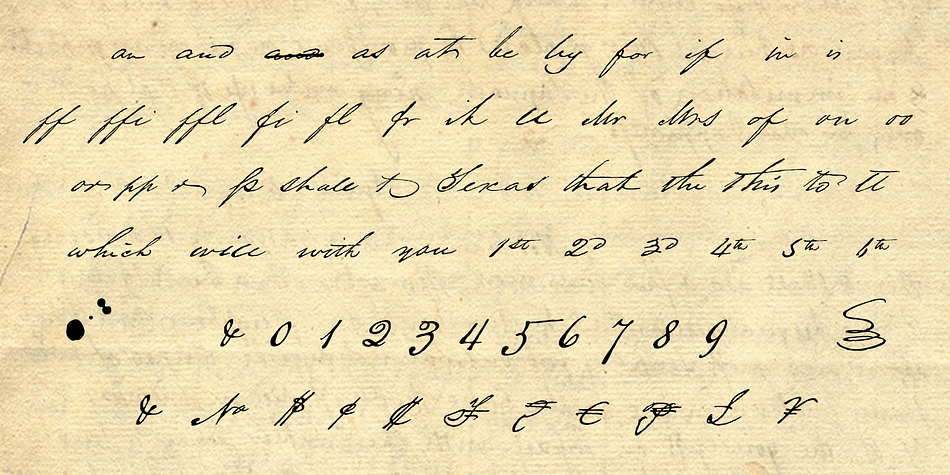 an and as at be by for if in is
ff ffi ffl fi fl fr it ll Mr Mrs of on oo
or pp r ß shall Texas that the this to tt
which will with you 1st 2d 3d 4th 5th 6th
& 0 1 2 3 4 5 6 7 8 9
& No $ ¢ ₡ ₣ € ₱ £ ¥